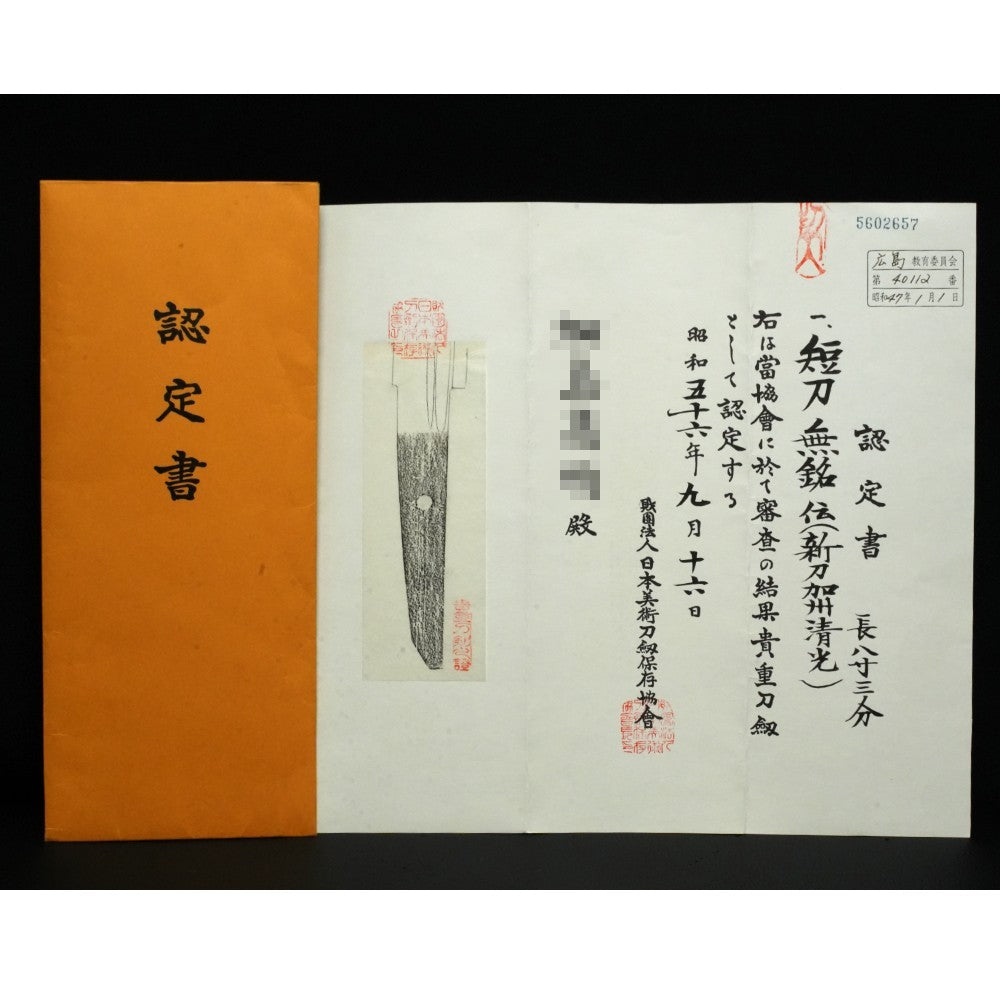 認定書
5602657
広島教育委員会
第40112番
昭和47年1月1日
認定書
長八寸三分
一、短刀 無銘 伝(新刀加州清光)
右は當協會に於て審査の結果貴重刀劔
として認定する
昭和五十六年九月十六日
財團法人日本美術刀劔保存協會
殿